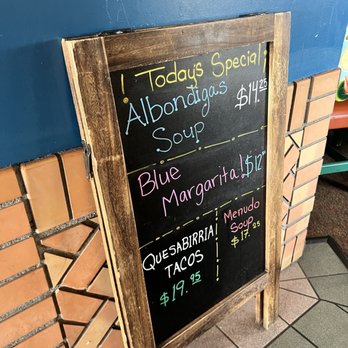 ! Today's Special!
Albondigas
Soup $14.25
Blue
Margarita! $12
QUESABIRRIA
TACOS
$19.95
Menudo
Soup
$17.25